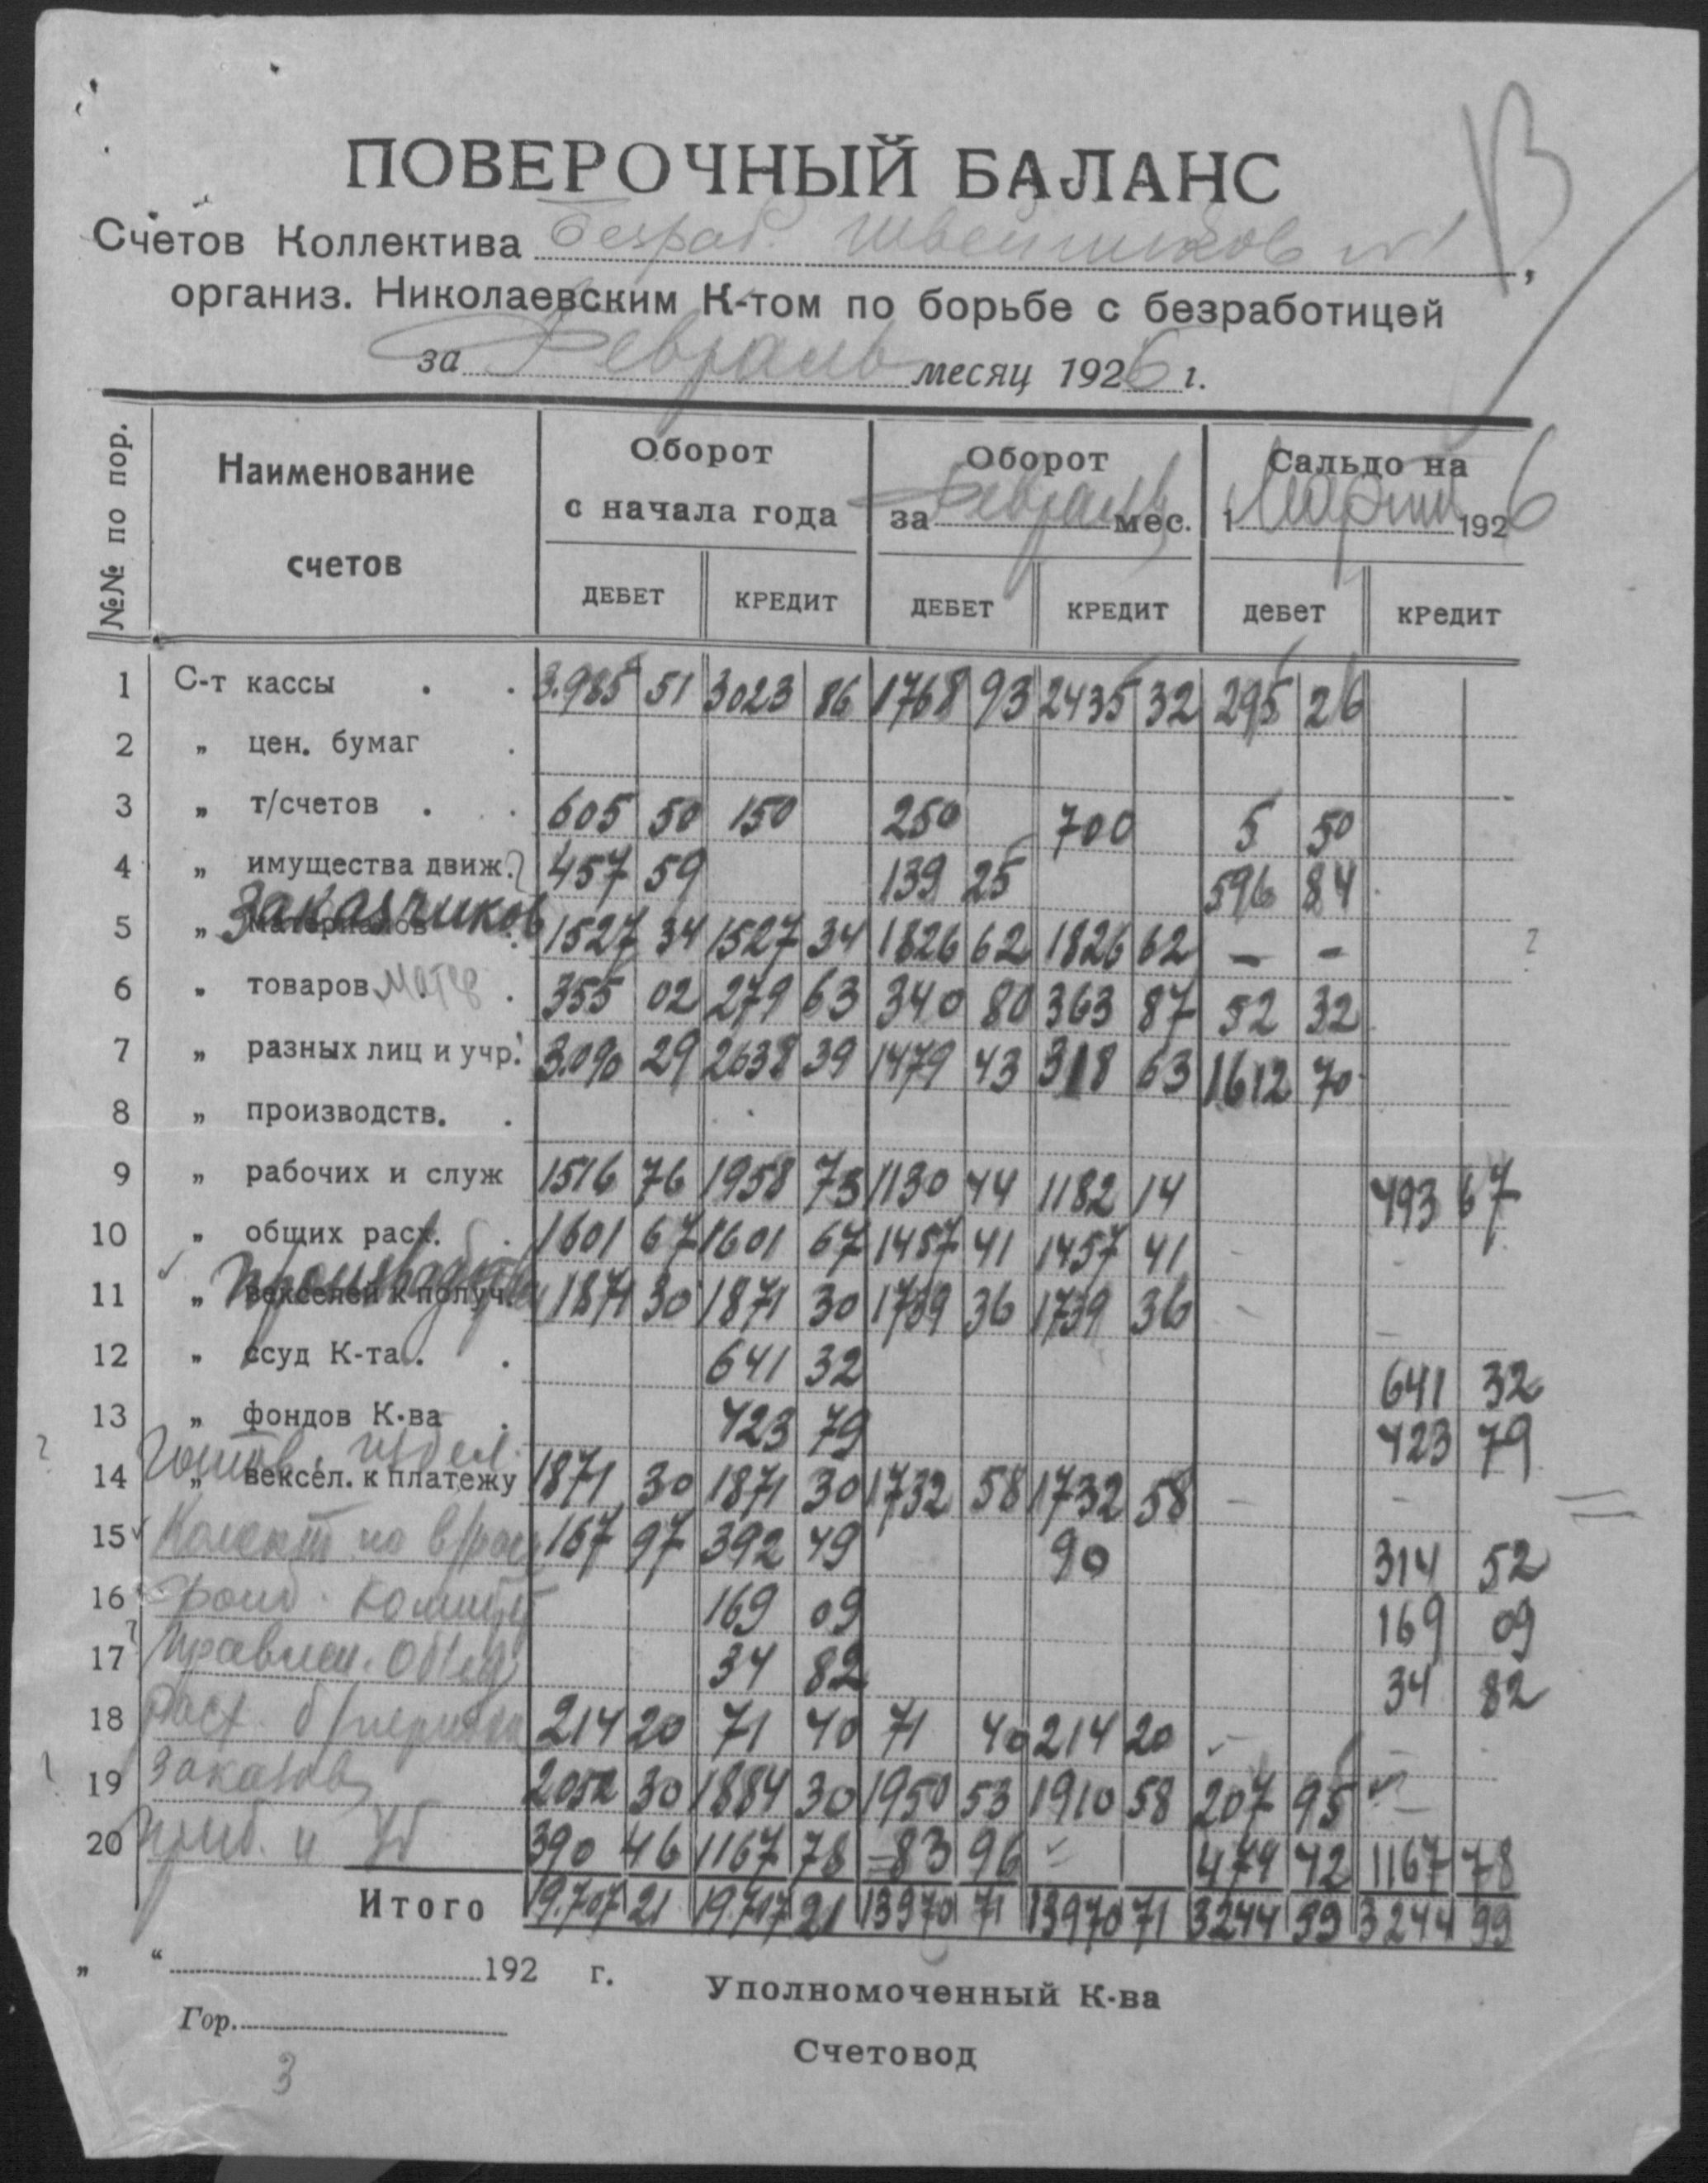 ПОВЕРОЧНЫЙ БАЛАНС
Счетов Коллектива безраб. швейников №1,
организ. Николаевским К-том по борьбе с безработицей
за Февраль месяц 1926 г.
№№ по пор.
Наименование счетов
Оборот с начала года
Оборот за Февраль мес.
Сальдо на 1 Марта 1926
ДЕБЕТ КРЕДИТ ДЕБЕТ КРЕДИТ дебет кредит
1 С-т кассы . . 3.985 51 3023 86 1768 93 2435 32 295 26
2 „ цен. бумаг .
3 „ т/счетов . . 605 50 150 250 700 5 50
4 „ имущества движ. 457 59 139 25 596 84
5 „ материалов Заказчиков 1527 34 1527 34 1826 62 1826 62 — — ?
6 „ товаров . 355 02 279 63 340 80 363 87 52 32
7 „ разных лиц и учр. 3.090 29 2638 39 1479 43 318 63 1612 70
8 „ производств. .
9 „ рабочих и служ 1516 76 1958 73 1130 44 1182 14 493 67
10 „ общих расх. . 1601 67 1601 67 1457 41 1457 41 - -
11 „ векселей к получ. Производства 1871 30 1871 30 1739 36 1739 36 - —
12 „ ссуд К-та . . 641 32 641 32
13 „ фондов К-ва . 423 79 423 79
? Готов. издел.
14 „ вексел. к платежу 1871 30 1871 30 1732 58 1732 58 - -
15 по 167 97 392 49 90 314 52
16 Фонд. 169 09 169 09
17 Правлен. 34 82 34 82
18 Расх. 214 20 71 40 71 40 214 20 - -
19 Заказов 2052 30 1884 30 1950 53 1910 58 207 95 —
20 Приб. и Уб 390 46 1167 78 83 96 474 42 1167 78
Итого 19.707 21 19.707 21 13970 71 13970 71 3244 99 3244 99
„ “ 192 г.
Уполномоченный К-ва
Гор.
Счетовод
3